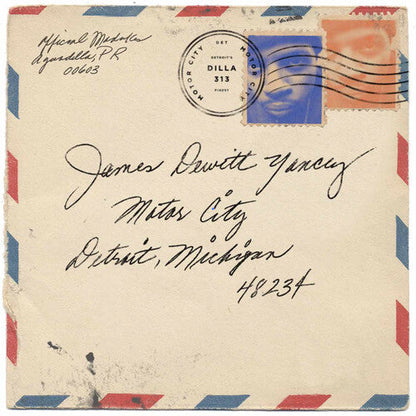 Official Medotas
Aguadilla, P.R
00603
MOTOR CITY
DET
MOTOR CITY
DETROIT'S
DILLA
313
FINEST
James Dewitt Yancey
Motor City
Detroit, Michigan
48234